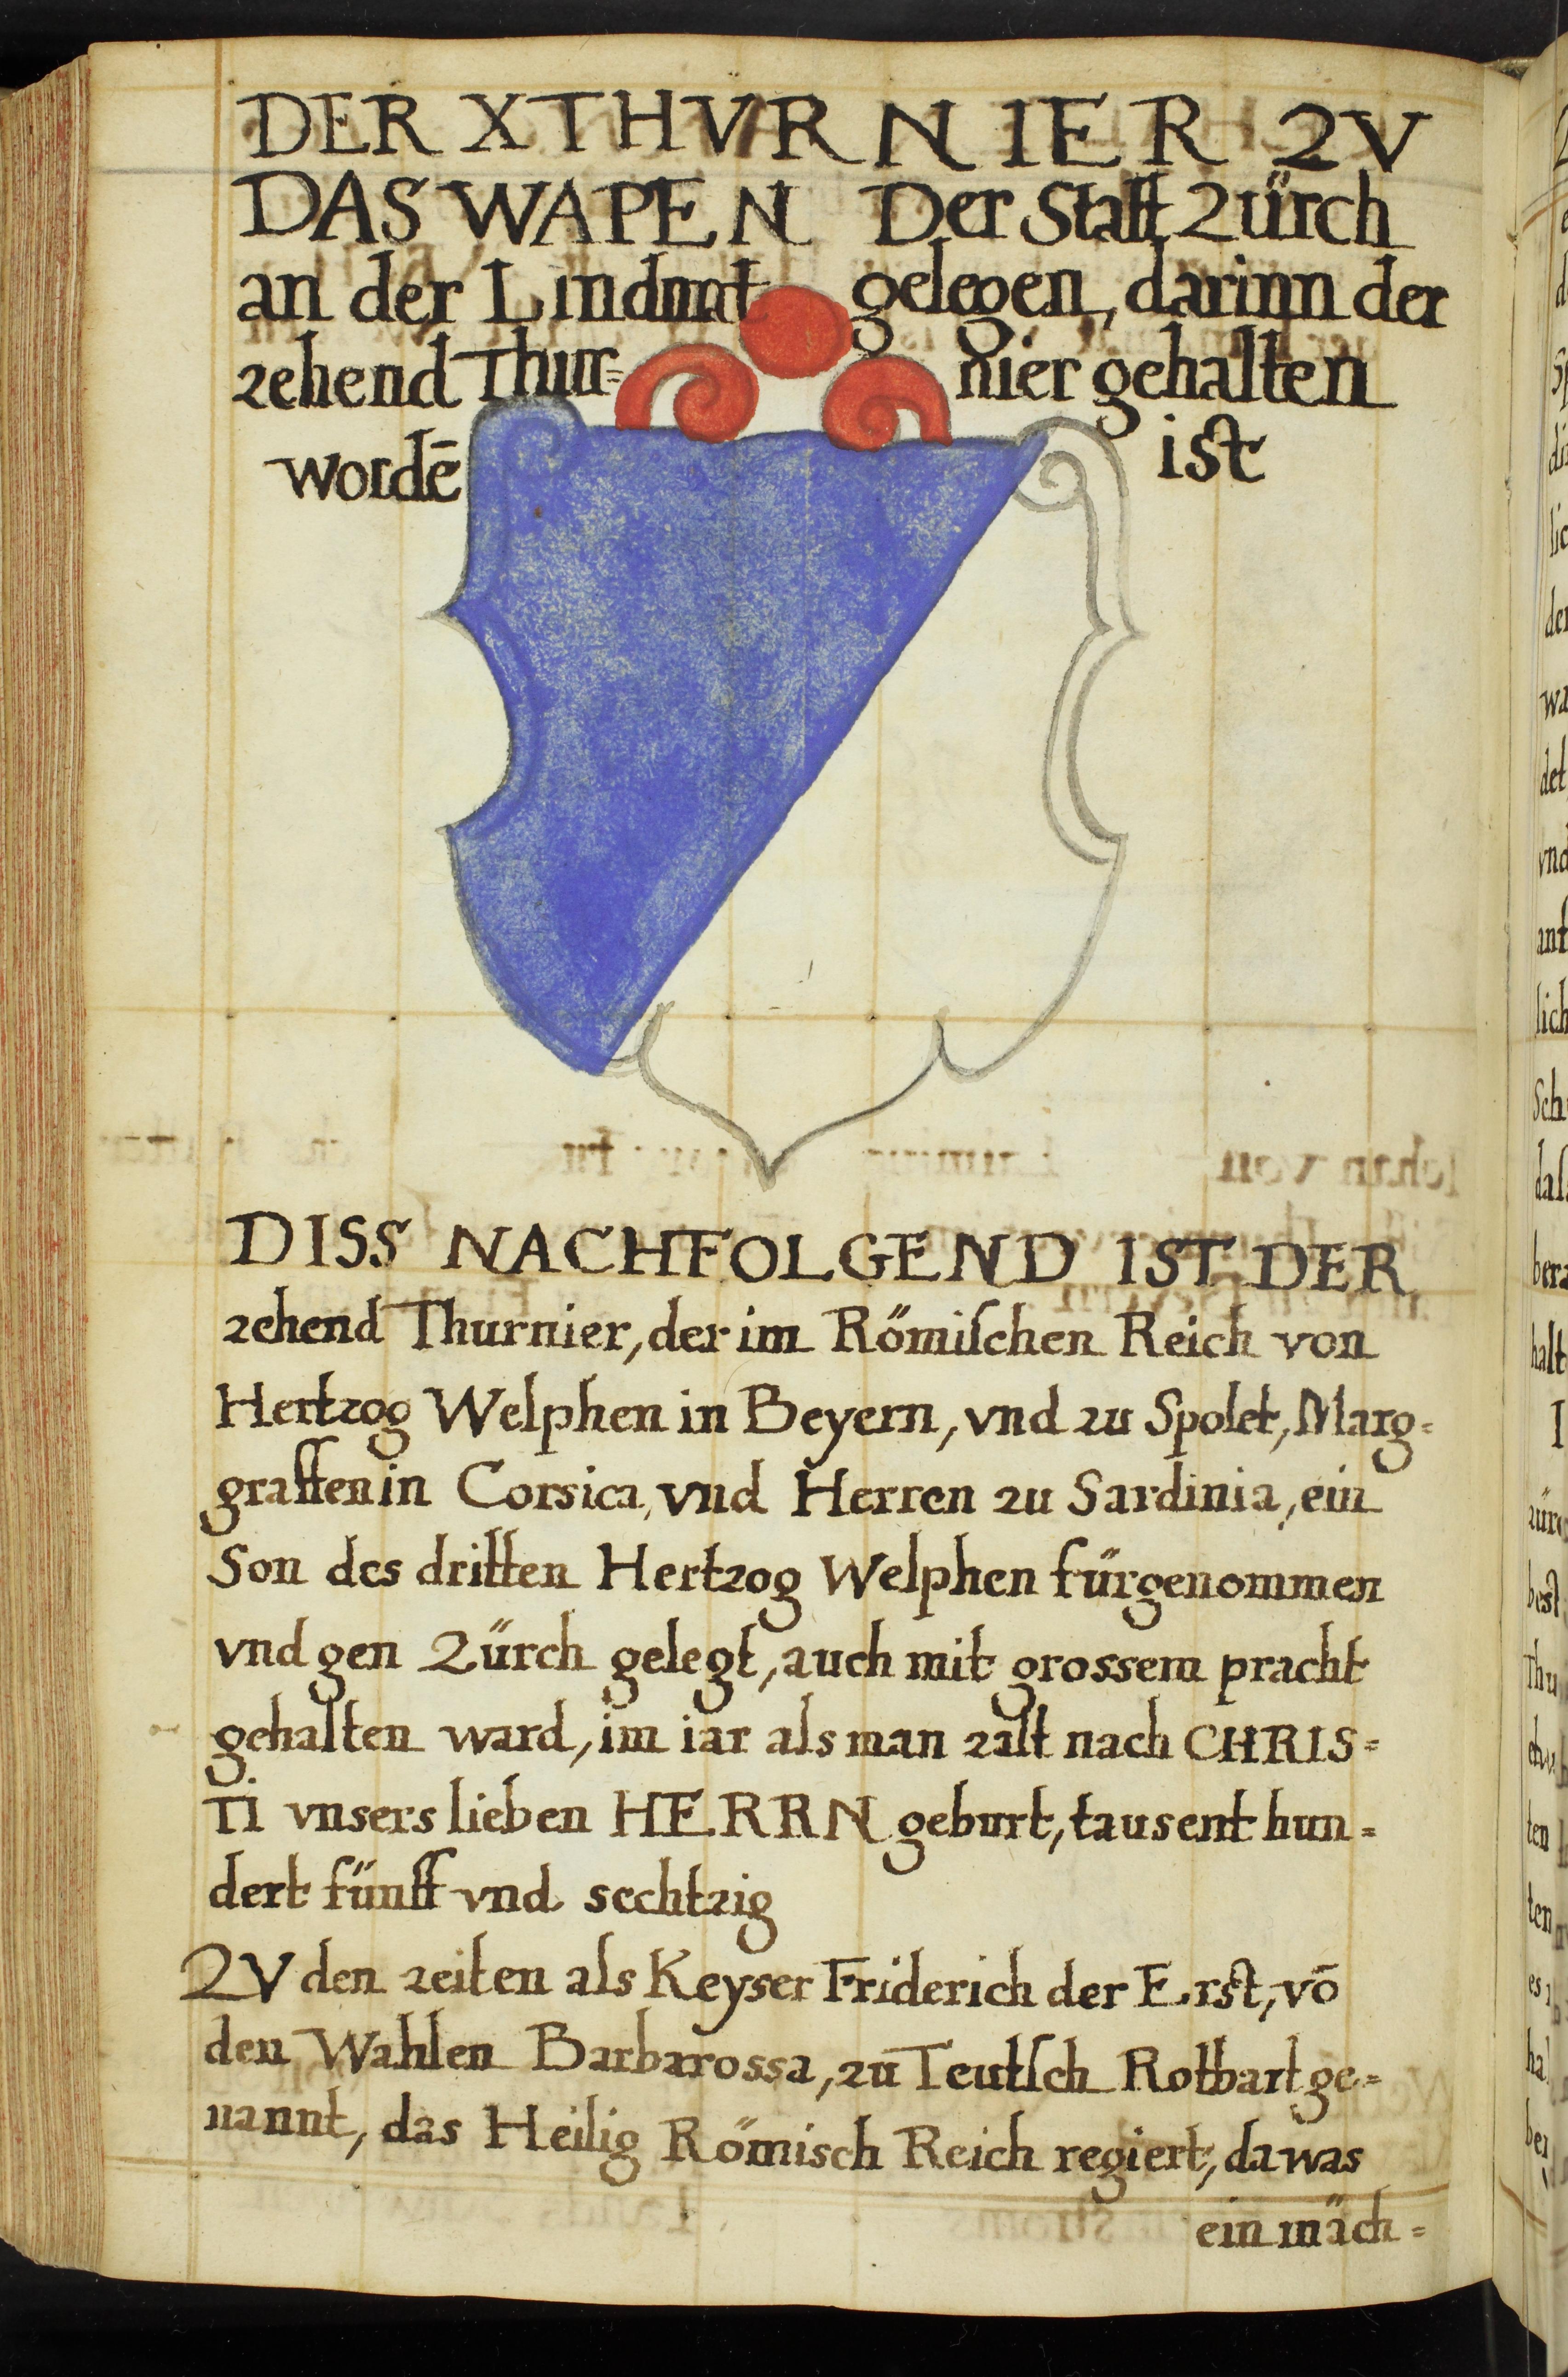 DER X THVRNIER ZV
DAS WAPEN Der Statt Zürch
an der Lindmat gelegen, darinn der
zehend Thur= nier gehalten
wordē ist
DISS NACHFOLGEND IST DER
zehend Thurnier, der im Römiſchen Reich von
Hertzog Welphen in Beyern, vnd zu Spolet, Marg=
graffen in Corsica, vnd Herren zu Sardinia, ein
Son des dritten Hertzog Welphen fürgenommen
vnd gen Zürch gelegt, auch mit grossem pracht
gehalten ward, im iar als man zalt nach CHRIS=
TI vnsers lieben HERRN geburt, tausent hun=
dert fünff vnd sechtzig
ZV den zeiten als Keyser Friderich der Erst, vō
den Wahlen Barbarossa, zu Teutſch Rotbart ge=
nannt, das Heilig Römisch Reich regiert, da was
ein mäch=